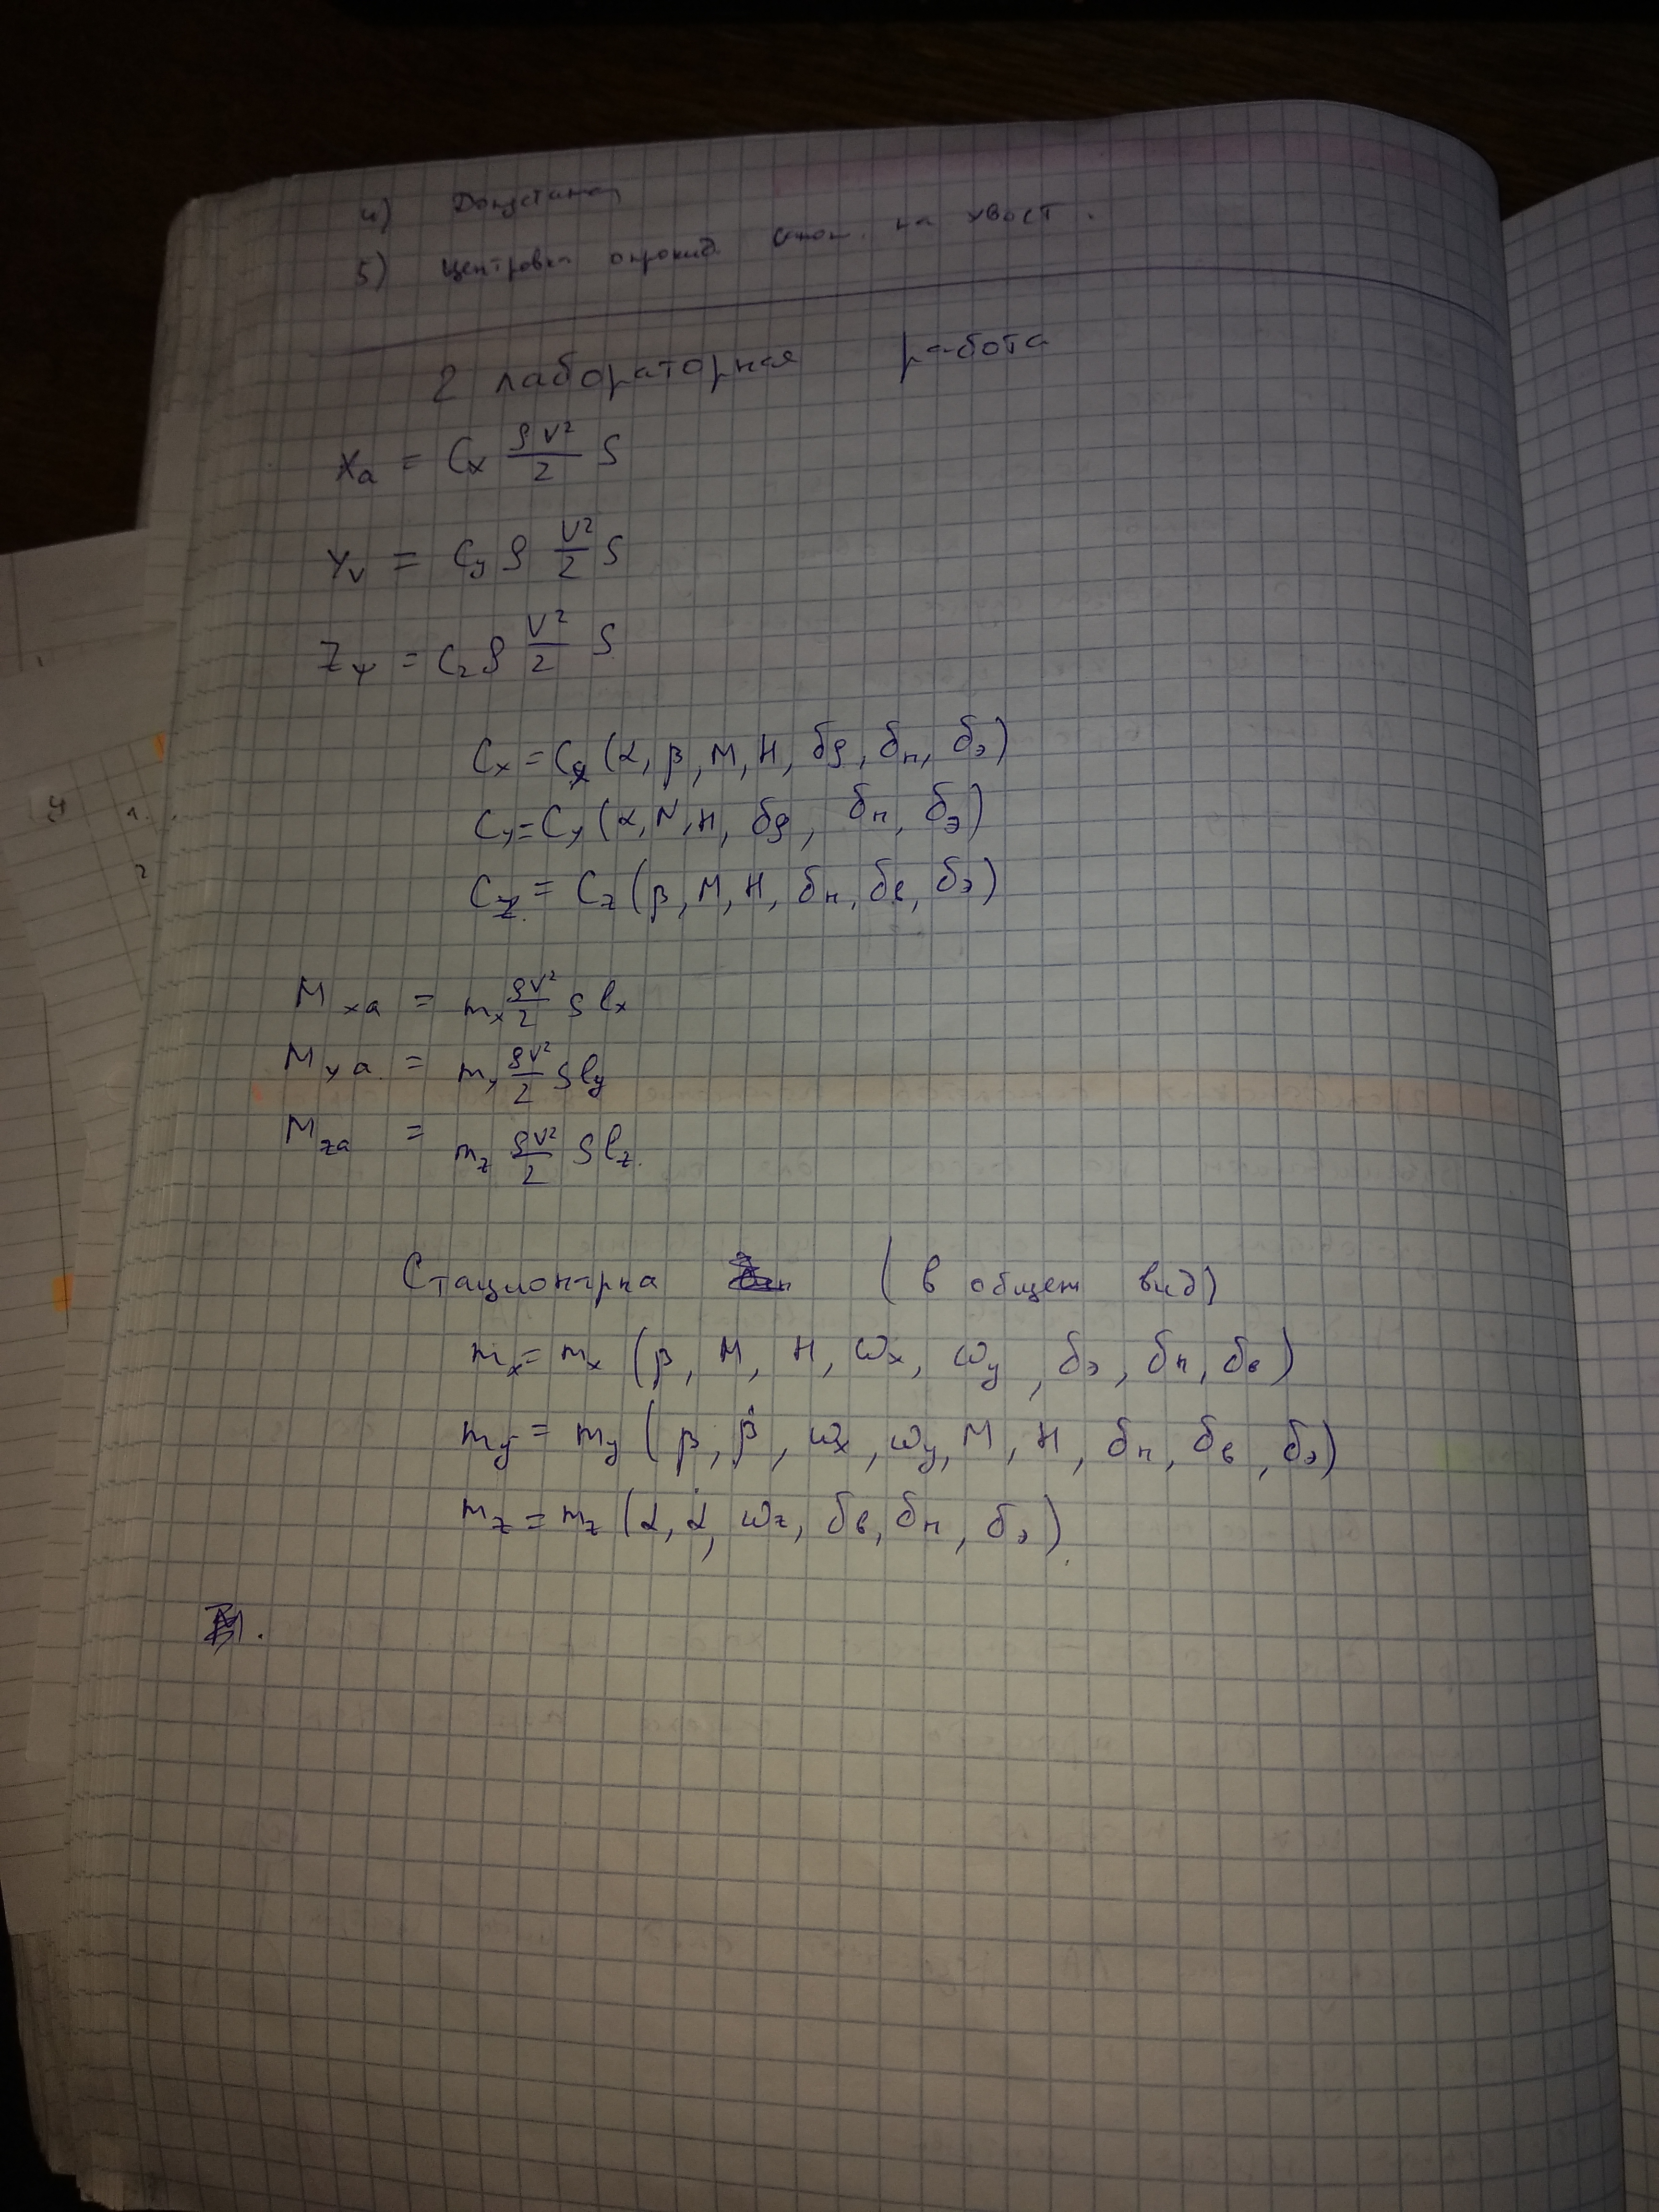 4) Допустимая
5) Центровка опрокид. на хвост.
2 лабораторная работа
Xa = Cx ρV²/2 S
Yv = Cy ρ V²/2 S
Zψ = Cz ρ V²/2 S
Cx = Cx (α, β, M, H, δg, δн, δэ)
Cy = Cy (α, M, H, δg, δн, δэ)
Cz = Cz (β, M, H, δн, δв, δэ)
Mxa = mx ρV²/2 S lx
Mya = my ρV²/2 S ly
Mza = mz ρV²/2 S lz.
Стационарка (в общем вид)
mx = mx (β, M, H, ωx, ωy, δэ, δн, δв)
my = my (β, β̇, ωx, ωy, M, H, δн, δв, δэ)
mz = mz (α, α̇, ωz, δв, δн, δэ).